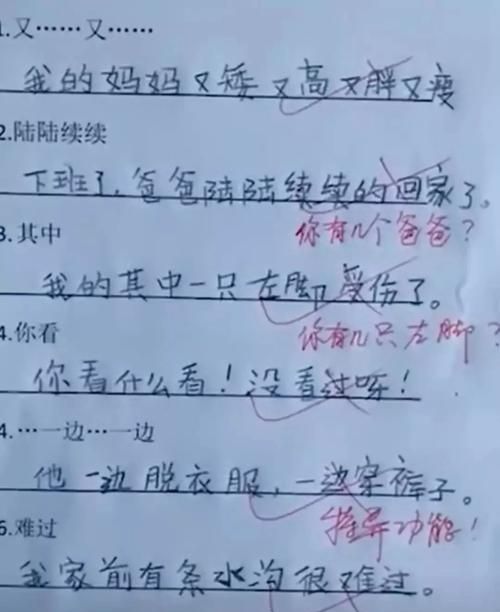 1.又……又……
我的妈妈又矮又高又胖又瘦
2.陆陆续续
下班了,爸爸陆陆续续的回家了。
你有几个爸爸?
3.其中
我的其中一只左脚受伤了。
你有几只左脚?
4.你看
你看什么看!没看过呀!
4.…一边…一边
他一边脱衣服,一边穿裤子。
特异功能!
5.难过
我家前有条水沟很难过。